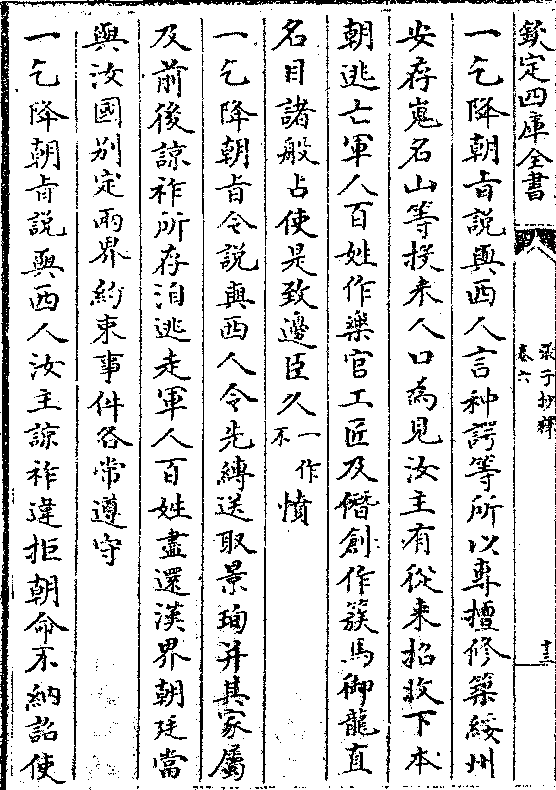 欽定四庫全書
張子抄釋
卷六
十三
一乞降朝旨説與西人言种諤等所以專擅修築綏州
安存嵬名山等投来人口為見汝主有從来招收下本
朝逃亡軍人百姓作樂官工匠及僭創作簇馬御龍直
名目諸般占使是致邊臣久一作不憤
一乞降朝旨令説與西人令先縛送取景珣并其家屬
及前後諒祚所存泊逃走軍人百姓盡還漢界朝廷當
與汝國别定兩界約束事件各常遵守
一乞降朝旨説與西人汝主諒祚違拒朝命不納詔使